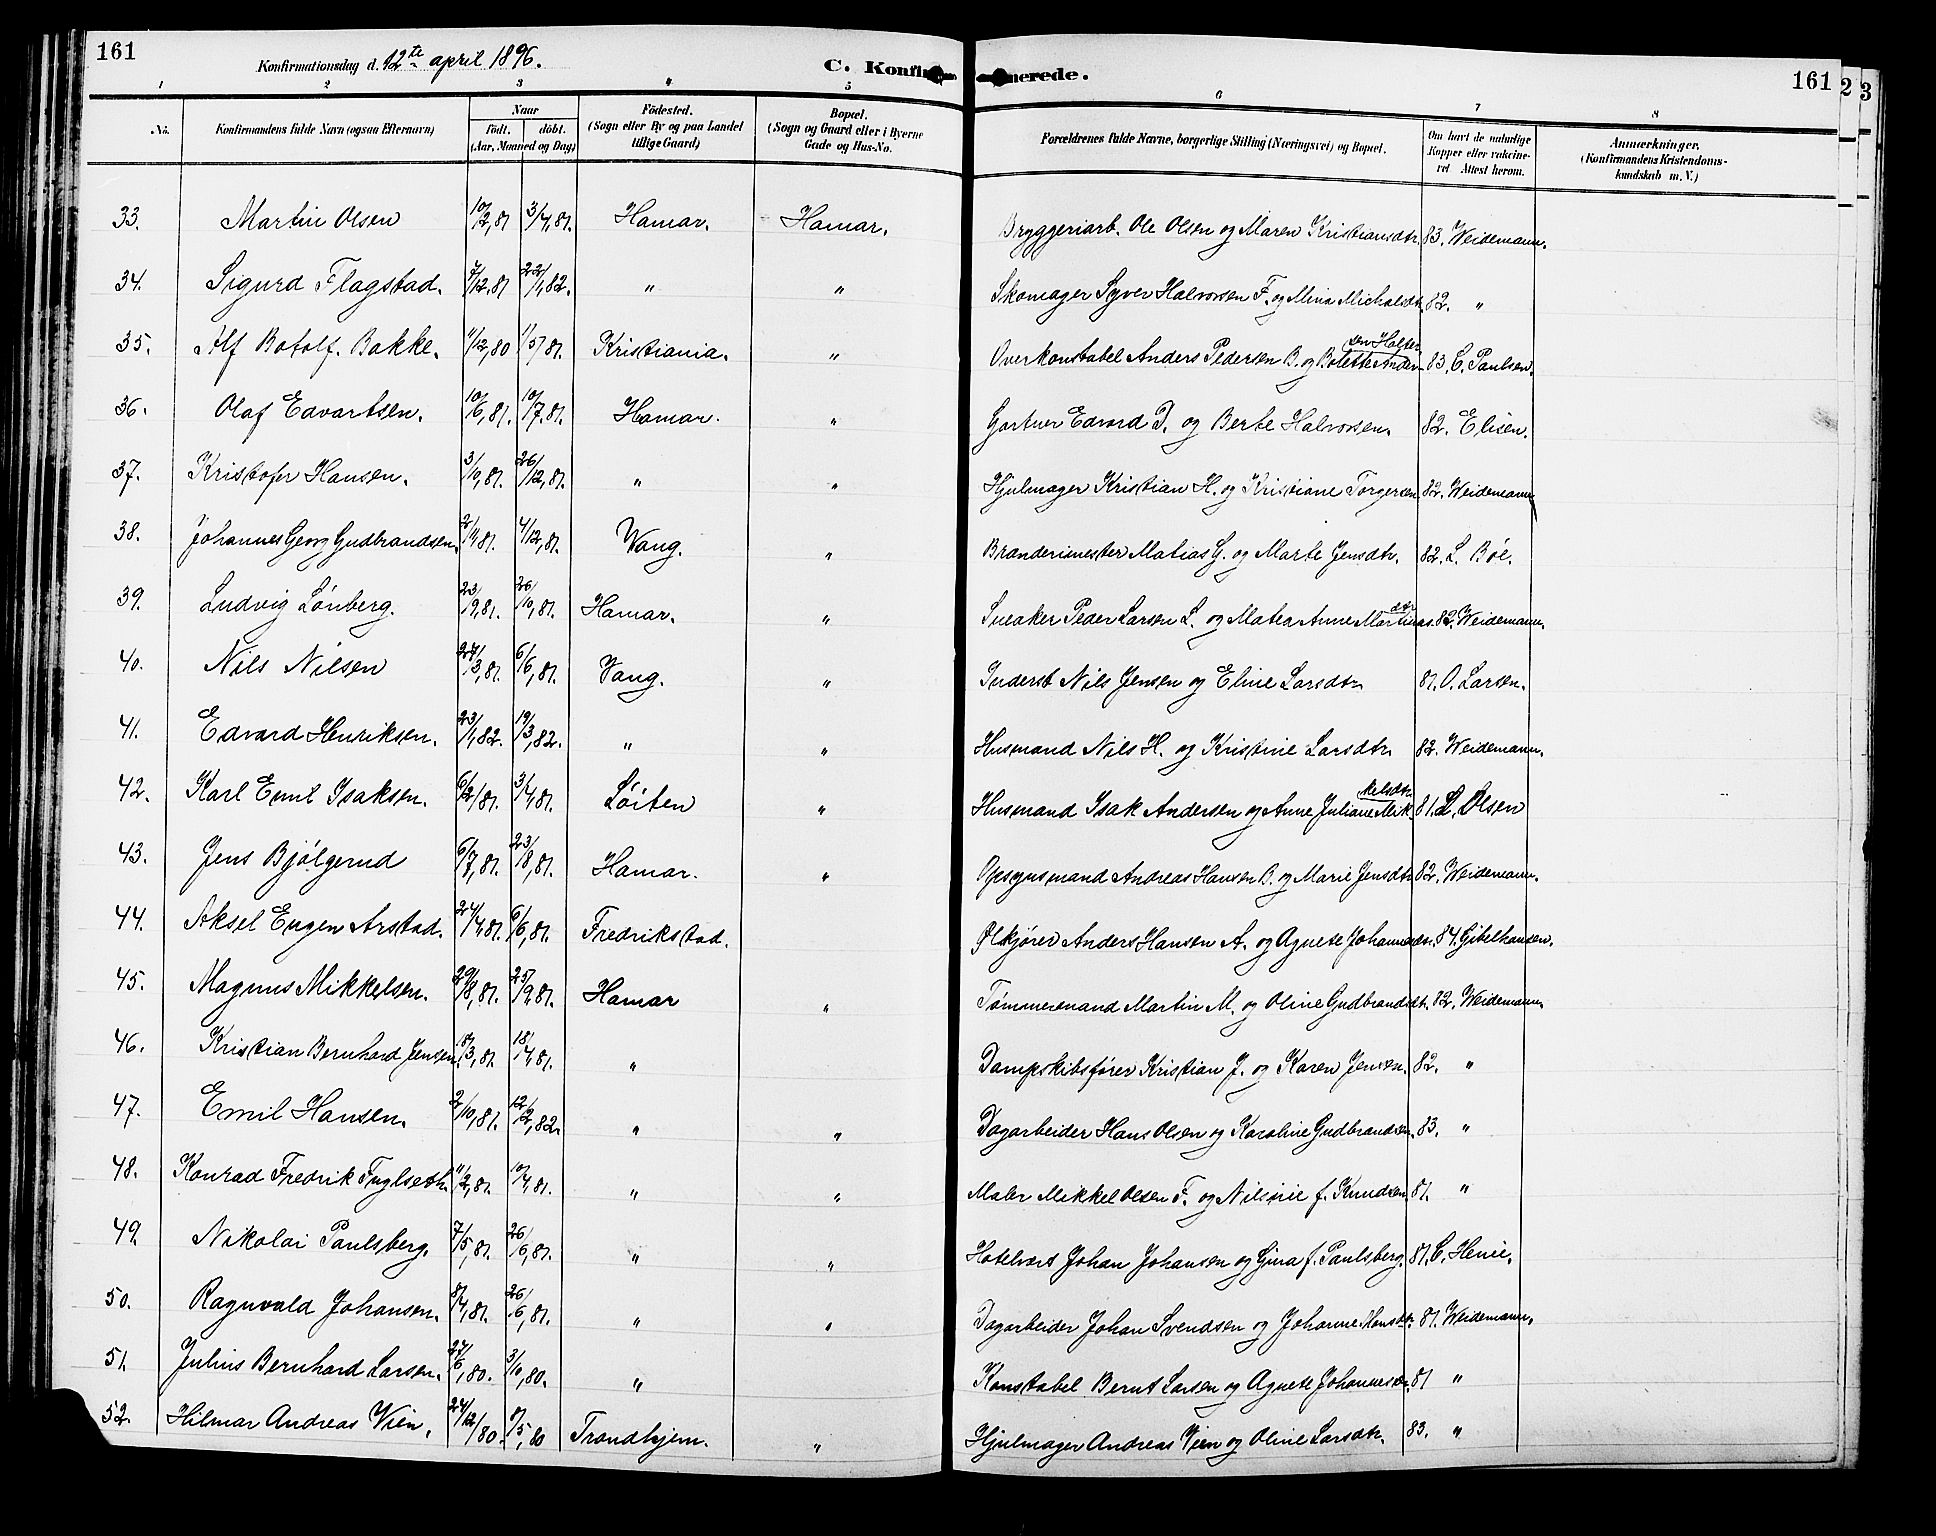 161
Konfirmationsdag d. 12te april 1896.
C. Konfir
merede.
161
2
3
1 2 3 4 5 6 7 8
No.
Konfirmandens fulde Navn (ogsaa Efternavn)
Naar
födt. döbt.
(Aar, Maaned og Dag)
Födested.
(Sogn eller By og paa Landet
tillige Gaard)
Bopæl.
(Sogn og Gaard eller i Byerne
Gade og Hus-No.
Forældrenes fulde Navne, borgerlige Stilling (Næringsvei) og Bopæl.
Om havt de naturlige
Kopper eller vakcine-
ret Attest herom.
Anmærkninger.
(Konfirmandens Kristendoms-
kundskab m. V.)
33. Martin Olsen 10/2,81 3/4,81. Hamar. Hamar. Bryggeriarb. Ole Olsen og Maren Kristiansdtr. 83. Weidemann.
34. Sigurd Flagstad. 7/12,81 22/1,82. " " Skomager Syver Halvorsen F. og Mina Michalsdtr. 82. "
35. Alf Botolf. Bakke. 11/12,80 1/5,81. Kristiania. " Overkonstabel Anders Pedersen B. og Bolette Ander- sen Halter 83. C. Paulsen.
36. Olaf Edvartsen. 10/6,81. 10/7.81. Hamar. " Gartner Edvard D. og Berte Halvorsen. 82. Elisen.
37. Kristofer Hansen. 3/10,81. 26/12,81. " " Hjulmager Kristian H. og Kristiane Torgersen 82. Weidemann
38. Johannes Georg Gudbrandsen. 2/4,81. 4/12,81. Vang. " Branderimester Matias G. og Marte Jensdtr. 82. L. Bøe.
39. Ludvig Lönberg. 23/9,81. 26/10,81. Hamar. " Sneaker Peder Larsen L. og Matea Anne Martinas. dtr 82. Weidemann.
40. Nils Nilsen 24/3,81. 6/6,81. Vang. " Inderst Nils Jensen og Eline Larsdtr 81. O. Larsen.
41. Edvard Henriksen. 23/1,82. 19/3,82. " " Husmand Nils H. og Kristine Larsdtr 82. Weidemann.
42. Karl Emil Isaksen. 6/2/81. 3/4,81. Löiten " Husmand Isak Andersen og Anne Juliane Mik- kelsdtr 81. L. Olsen
43. Jens Bjölgerud 6/7,81. 23/8,81. Hamar. " Opsynsmand Andreas Hansen B. og Marie Jensdtr 82. Weidemann.
44. Aksel Eugen Arstad. 24/4,81. 6/6,81. Fredrikstad. Ølkjörer Anders Hansen A. og Agnete Johannesdtr. 84. Gibelhausen.
45. Magnus Mikkelsen. 29/8,81. 25/9,81. Hamar " Tömmermand Martin M. og Oline Gudbrandsdtr. 82. Weidemann.
46. Kristian Bernhard Jensen. 18/3,81. 18/4,81. " Dampskibsförer Kristian J. og Karen Jensen. 82. "
47. Emil Hansen. 2/10,81. 12/2,82. " " Dagarbeider Hans Olsen og Karoline Gudbrandsen. 83. "
48. Konrad Fredrik Fuglseth. 11/2,81. 10/4,81. " " Maler Mikkel Olsen F. og Nilsine f. Knudsen 81. "
49. Nikolai Paulsberg. 7/5,81. 26/6,81. " " Hotelvært Johan Johansen og Gina f. Paulsberg. 81. C. Henie.
50. Ragnvald Johansen. 8/4,81. 26/6,81. " " Dagarbeider Johan Svendsen og Johanne Monsdtr. 81. Weidemann.
51. Julius Bernhard Larsen. 27/6,80. 3/10,80. " Konstabel Bernt Larsen og Agnete Johannesdtr. 81 "
52. Hilmar Andreas Vien. 24/12/80. 8/5,80 Trondhjem. " Hjulmager Andreas Vien og Oline Larsdtr. 83. "